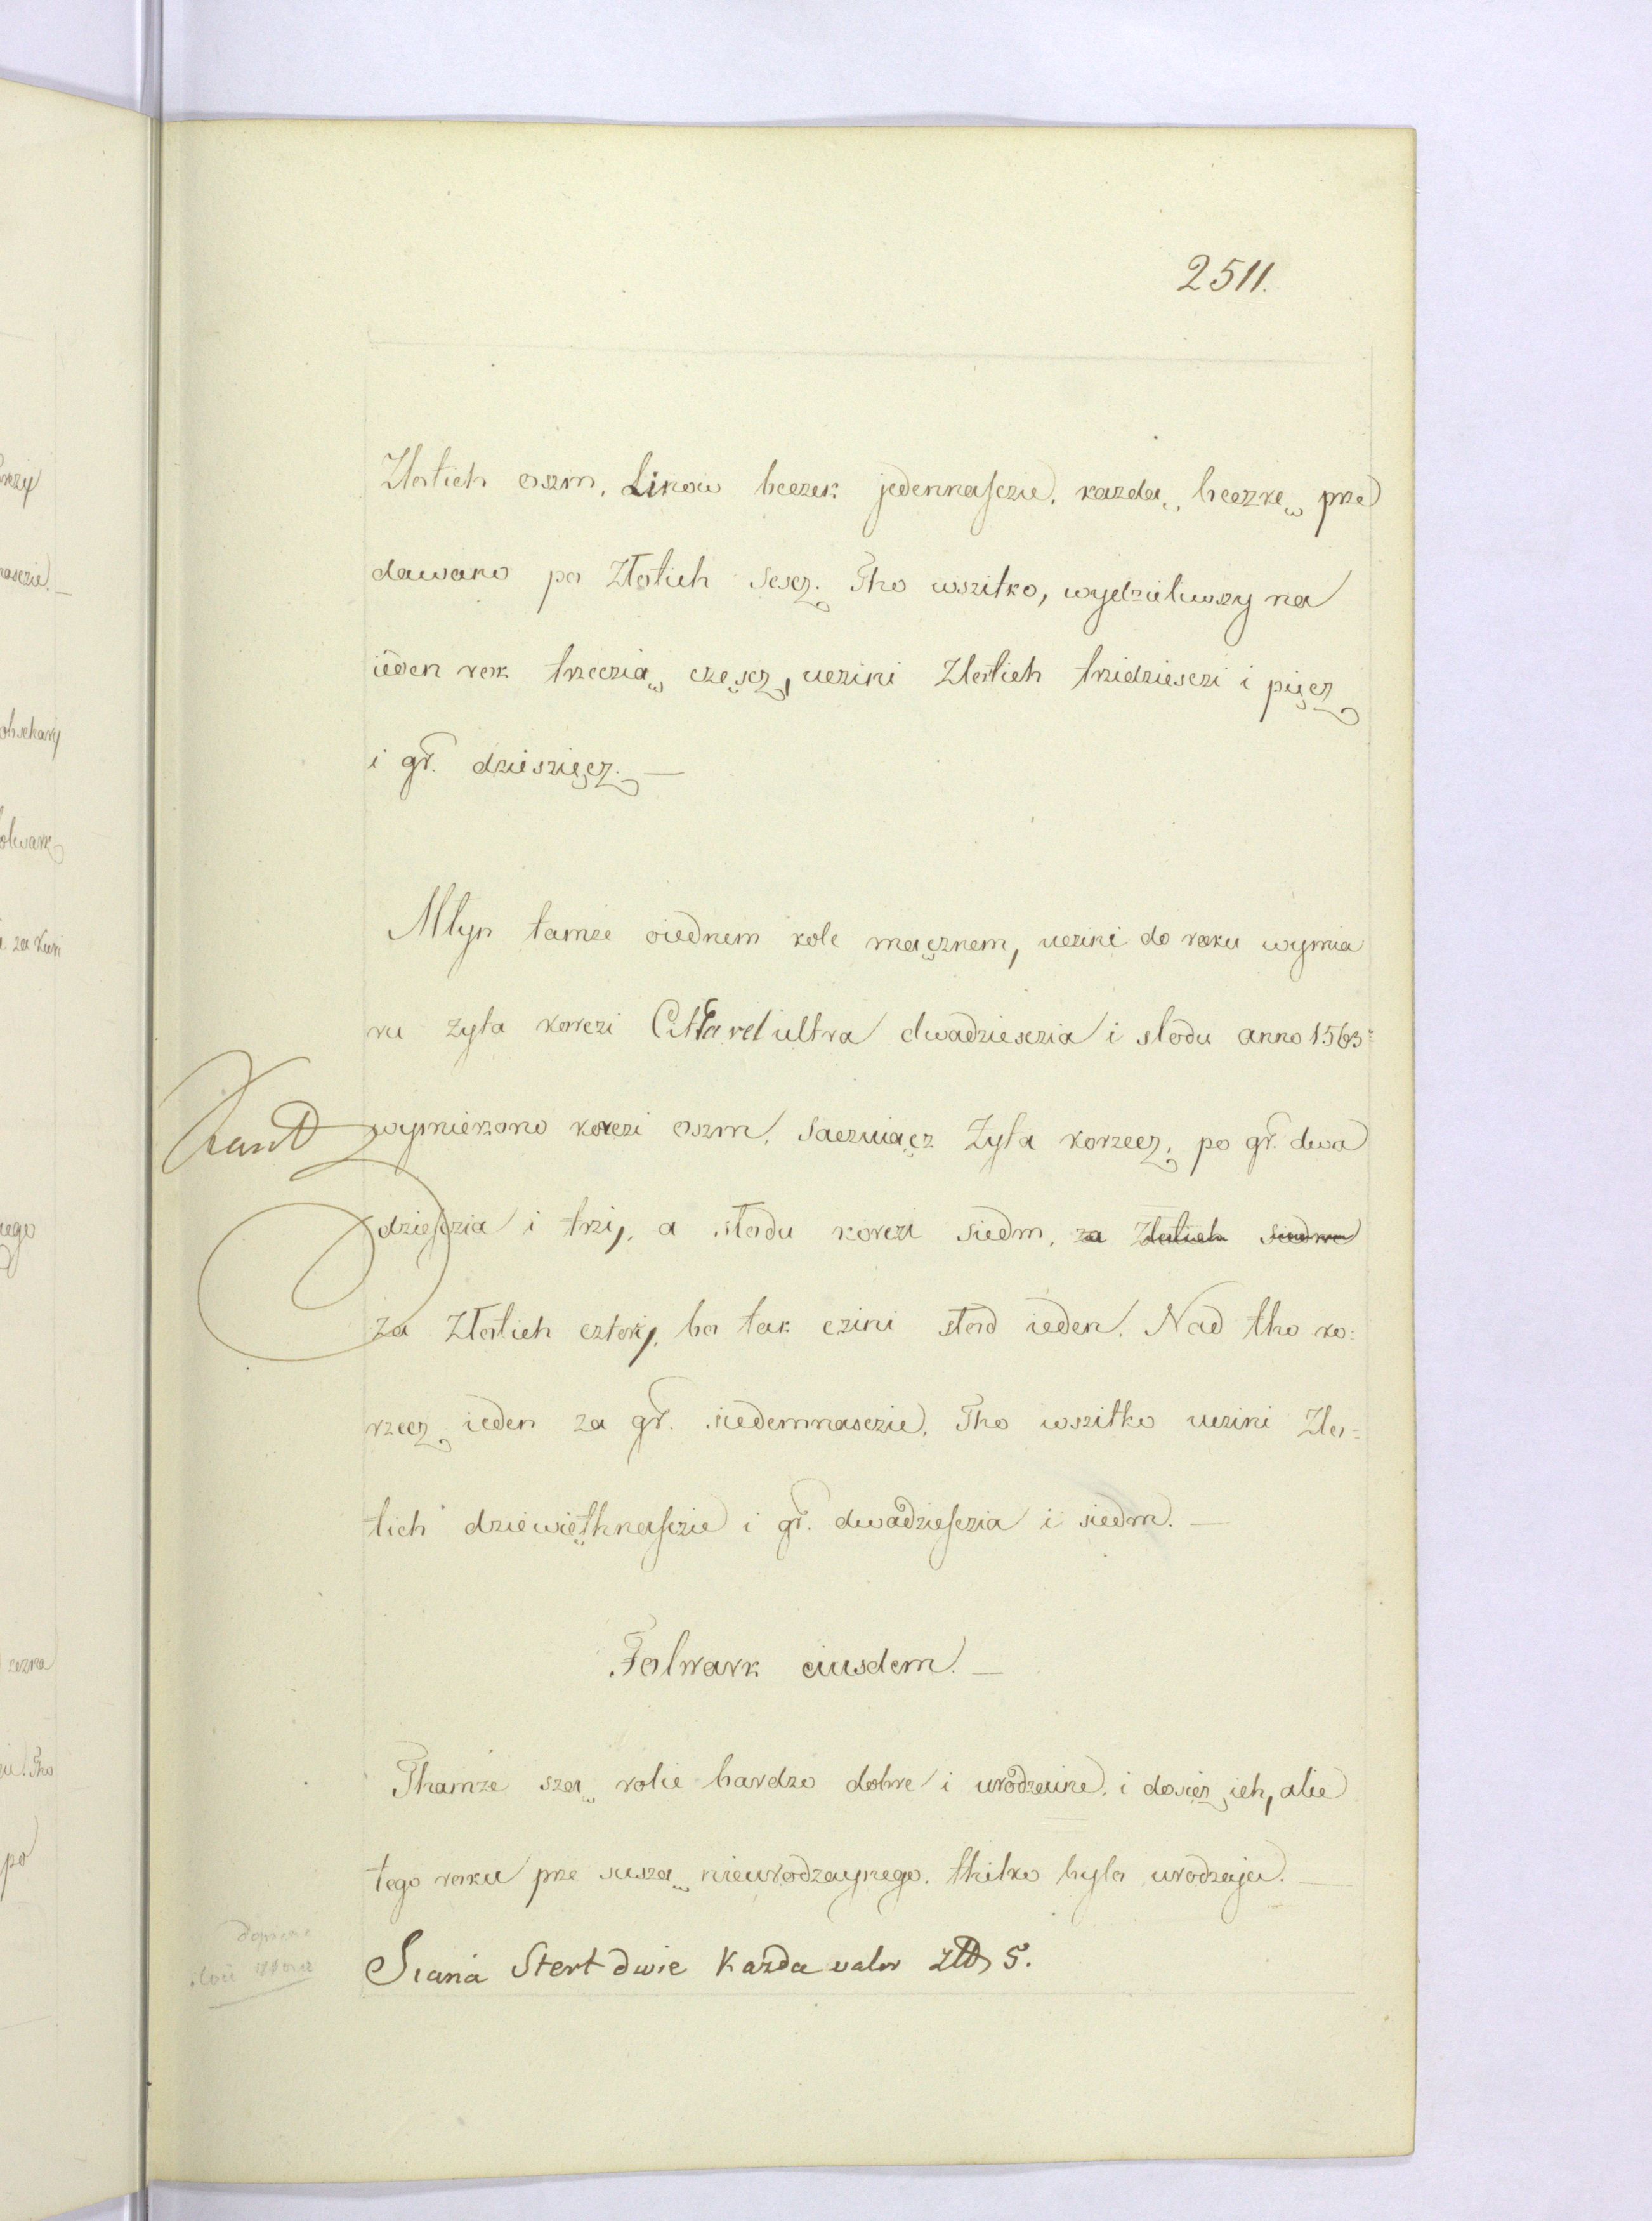 2511.
Złotich oszm, Linow beczek jedennasczie, kazdą, beczkę prze
dawano po Złotich sescz. Tho wszitko, wydzieliwszy na
ieden rok trzeczią częscz, uczini Złotich trzidziesczi i pięcz
i gr. dzieszięcz. —
Młyn tamze oiednem kole mącznem, uczini do roku wymia
ru zyta korczi vel ultra dwadziesczia i słodu anno 1563
wymierzono korczi oszm, Saczuiącz Zyta korzecz, po gr. dwa
dziesczia i trzi, a słodu korczi siedm, za Złotich siedm
za Złotich cztery, bo tak czini słod ieden. Nad tho ko:
rzecz ieden za gr. siedemnasczie, Tho wszitko uczini Zło=
tich dziewięthnasczie i gr. dwadziesczia i siedm. —
Folwark eiusdem. —
Thamze szą rolie bardzo dobre i urodzaine, i dosicz ich, alie
tego roku prze suszą nieurodzaynego, thilko bylo urodzaju. —
Siana Stert dwie Kazda valor złł 5.